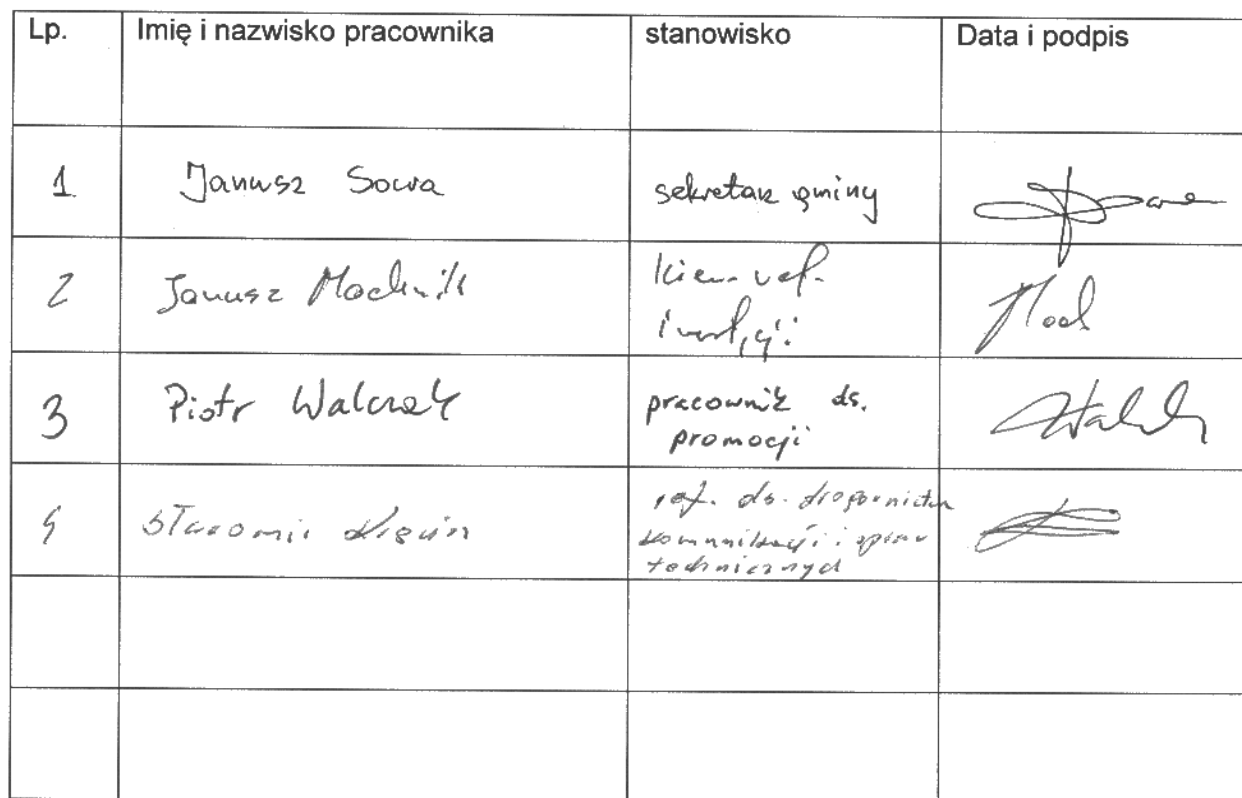 Lp. Imię i nazwisko pracownika stanowisko Data i podpis
1 Janusz Sowa sekretarz gminy
2 Janusz Machnik kier. ref.
3 Piotr Walczak pracownik ds.
promocji
ref. ds. drogownictwa
komunikacji i spraw
technicznych